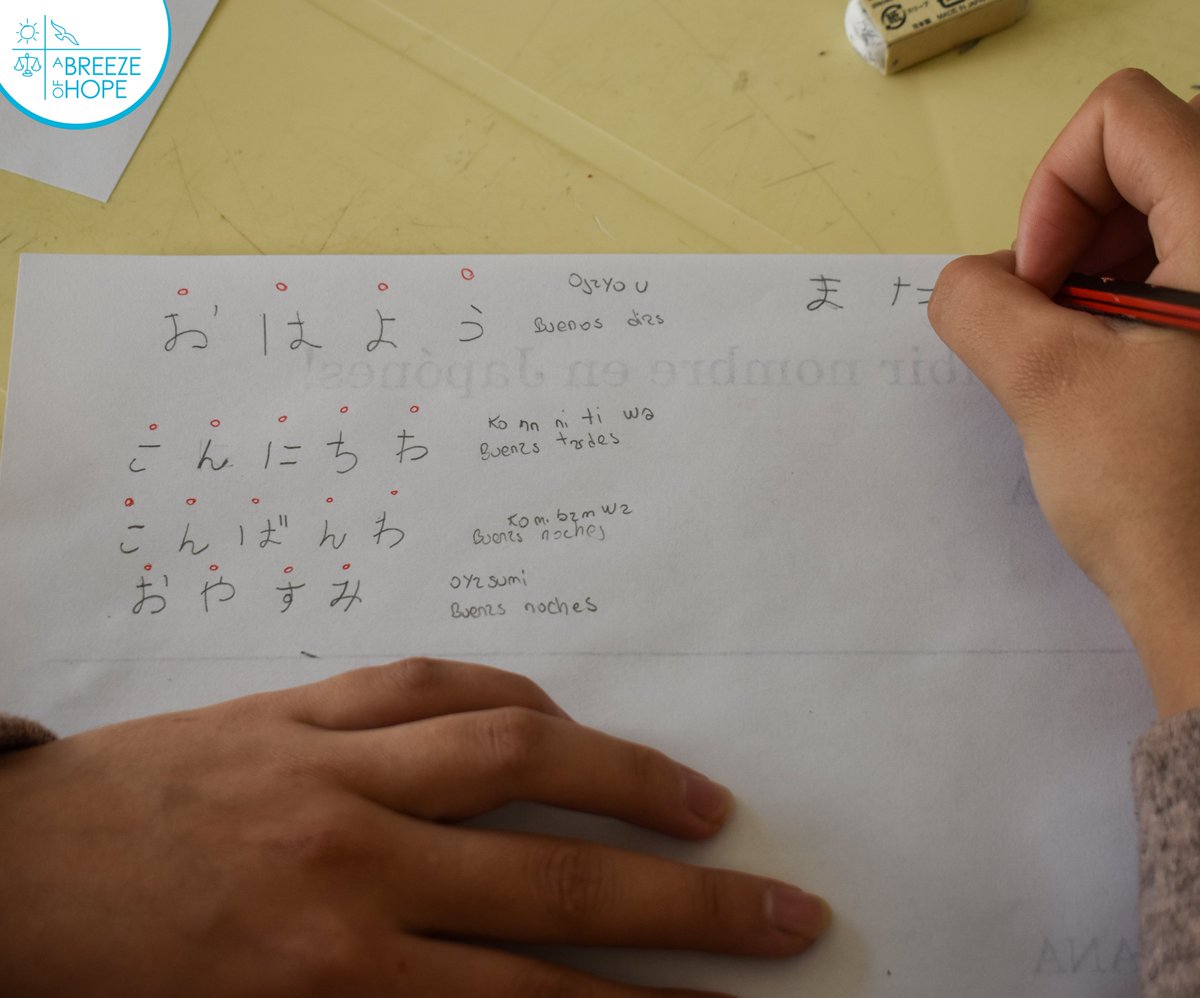 A BREEZE
OF HOPE
スリーブ
日本製 MADE IN JAPAN
お は よ う Ojayou ま た
Buenos dias
bir nombre en Japónes!
こ ん に ち わ Ko nn ni ti wa
Buenas tardes
こ ん ば ん わ Kom bam wa
Buenas noches
お や す み oyasumi
Buenas noches
ANA